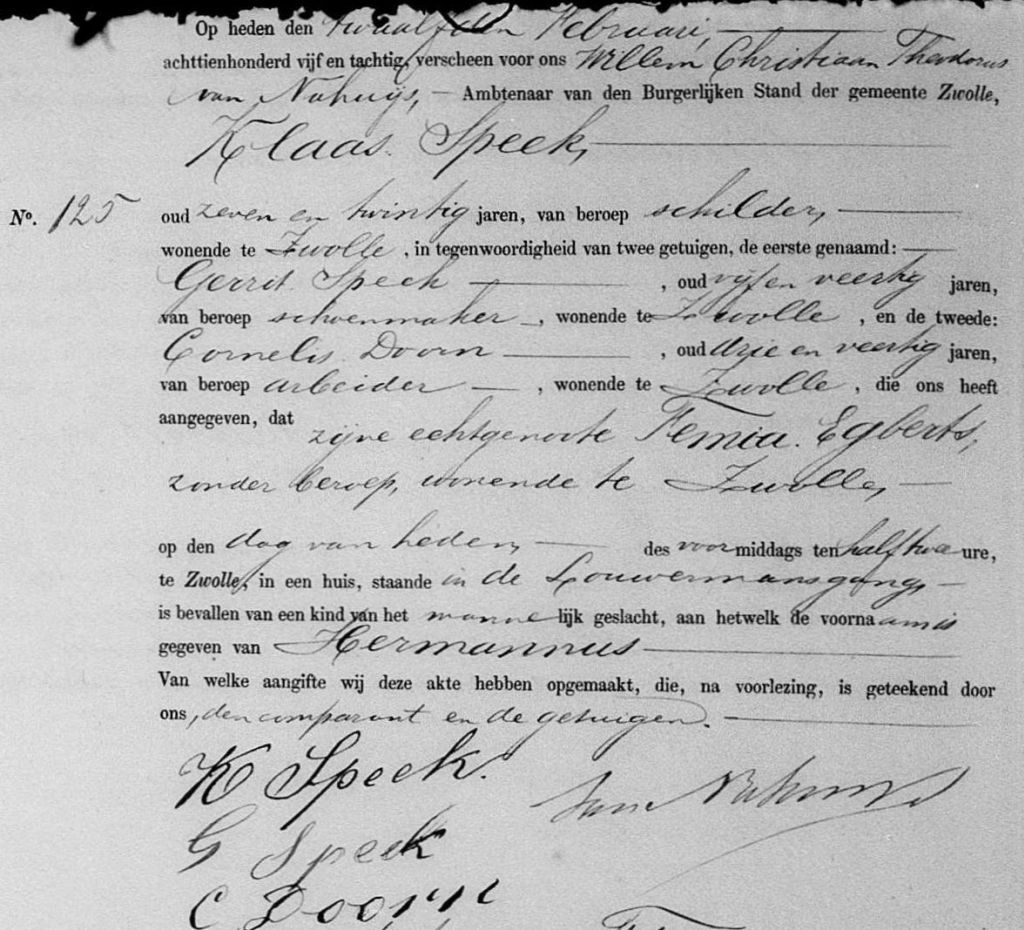 Op heden den twaalfden Februari,
achttienhonderd vijf en tachtig, verscheen voor ons Willem Christiaan Theodorus
van Nahuijs, Ambtenaar van den Burgerlijken Stand der gemeente Zwolle,
Klaas Speek,
No. 125 oud zeven en twintig jaren, van beroep schilder,
wonende te Zwolle, in tegenwoordigheid van twee getuigen, de eerste genaamd:
Gerrit Speek, oud vijf en veertig jaren,
van beroep schoenmaker, wonende te Zwolle, en de tweede:
Cornelis Doorn, oud drie en veertig jaren,
van beroep arbeider, wonende te Zwolle, die ons heeft
aangegeven, dat zijne echtgenoote Femia Egberts,
zonder beroep, wonende te Zwolle,
op den dag van heden, des voormiddags ten half twee ure,
te Zwolle, in een huis, staande in de Louwermansgang,
is bevallen van een kind van het mannelijk geslacht, aan hetwelk de voornaam is
gegeven van Hermannus
Van welke aangifte wij deze akte hebben opgemaakt, die, na voorlezing, is geteekend door
ons, den comparant en de getuigen.
K Speek.
van Nahuys
G Speek
C Doorn